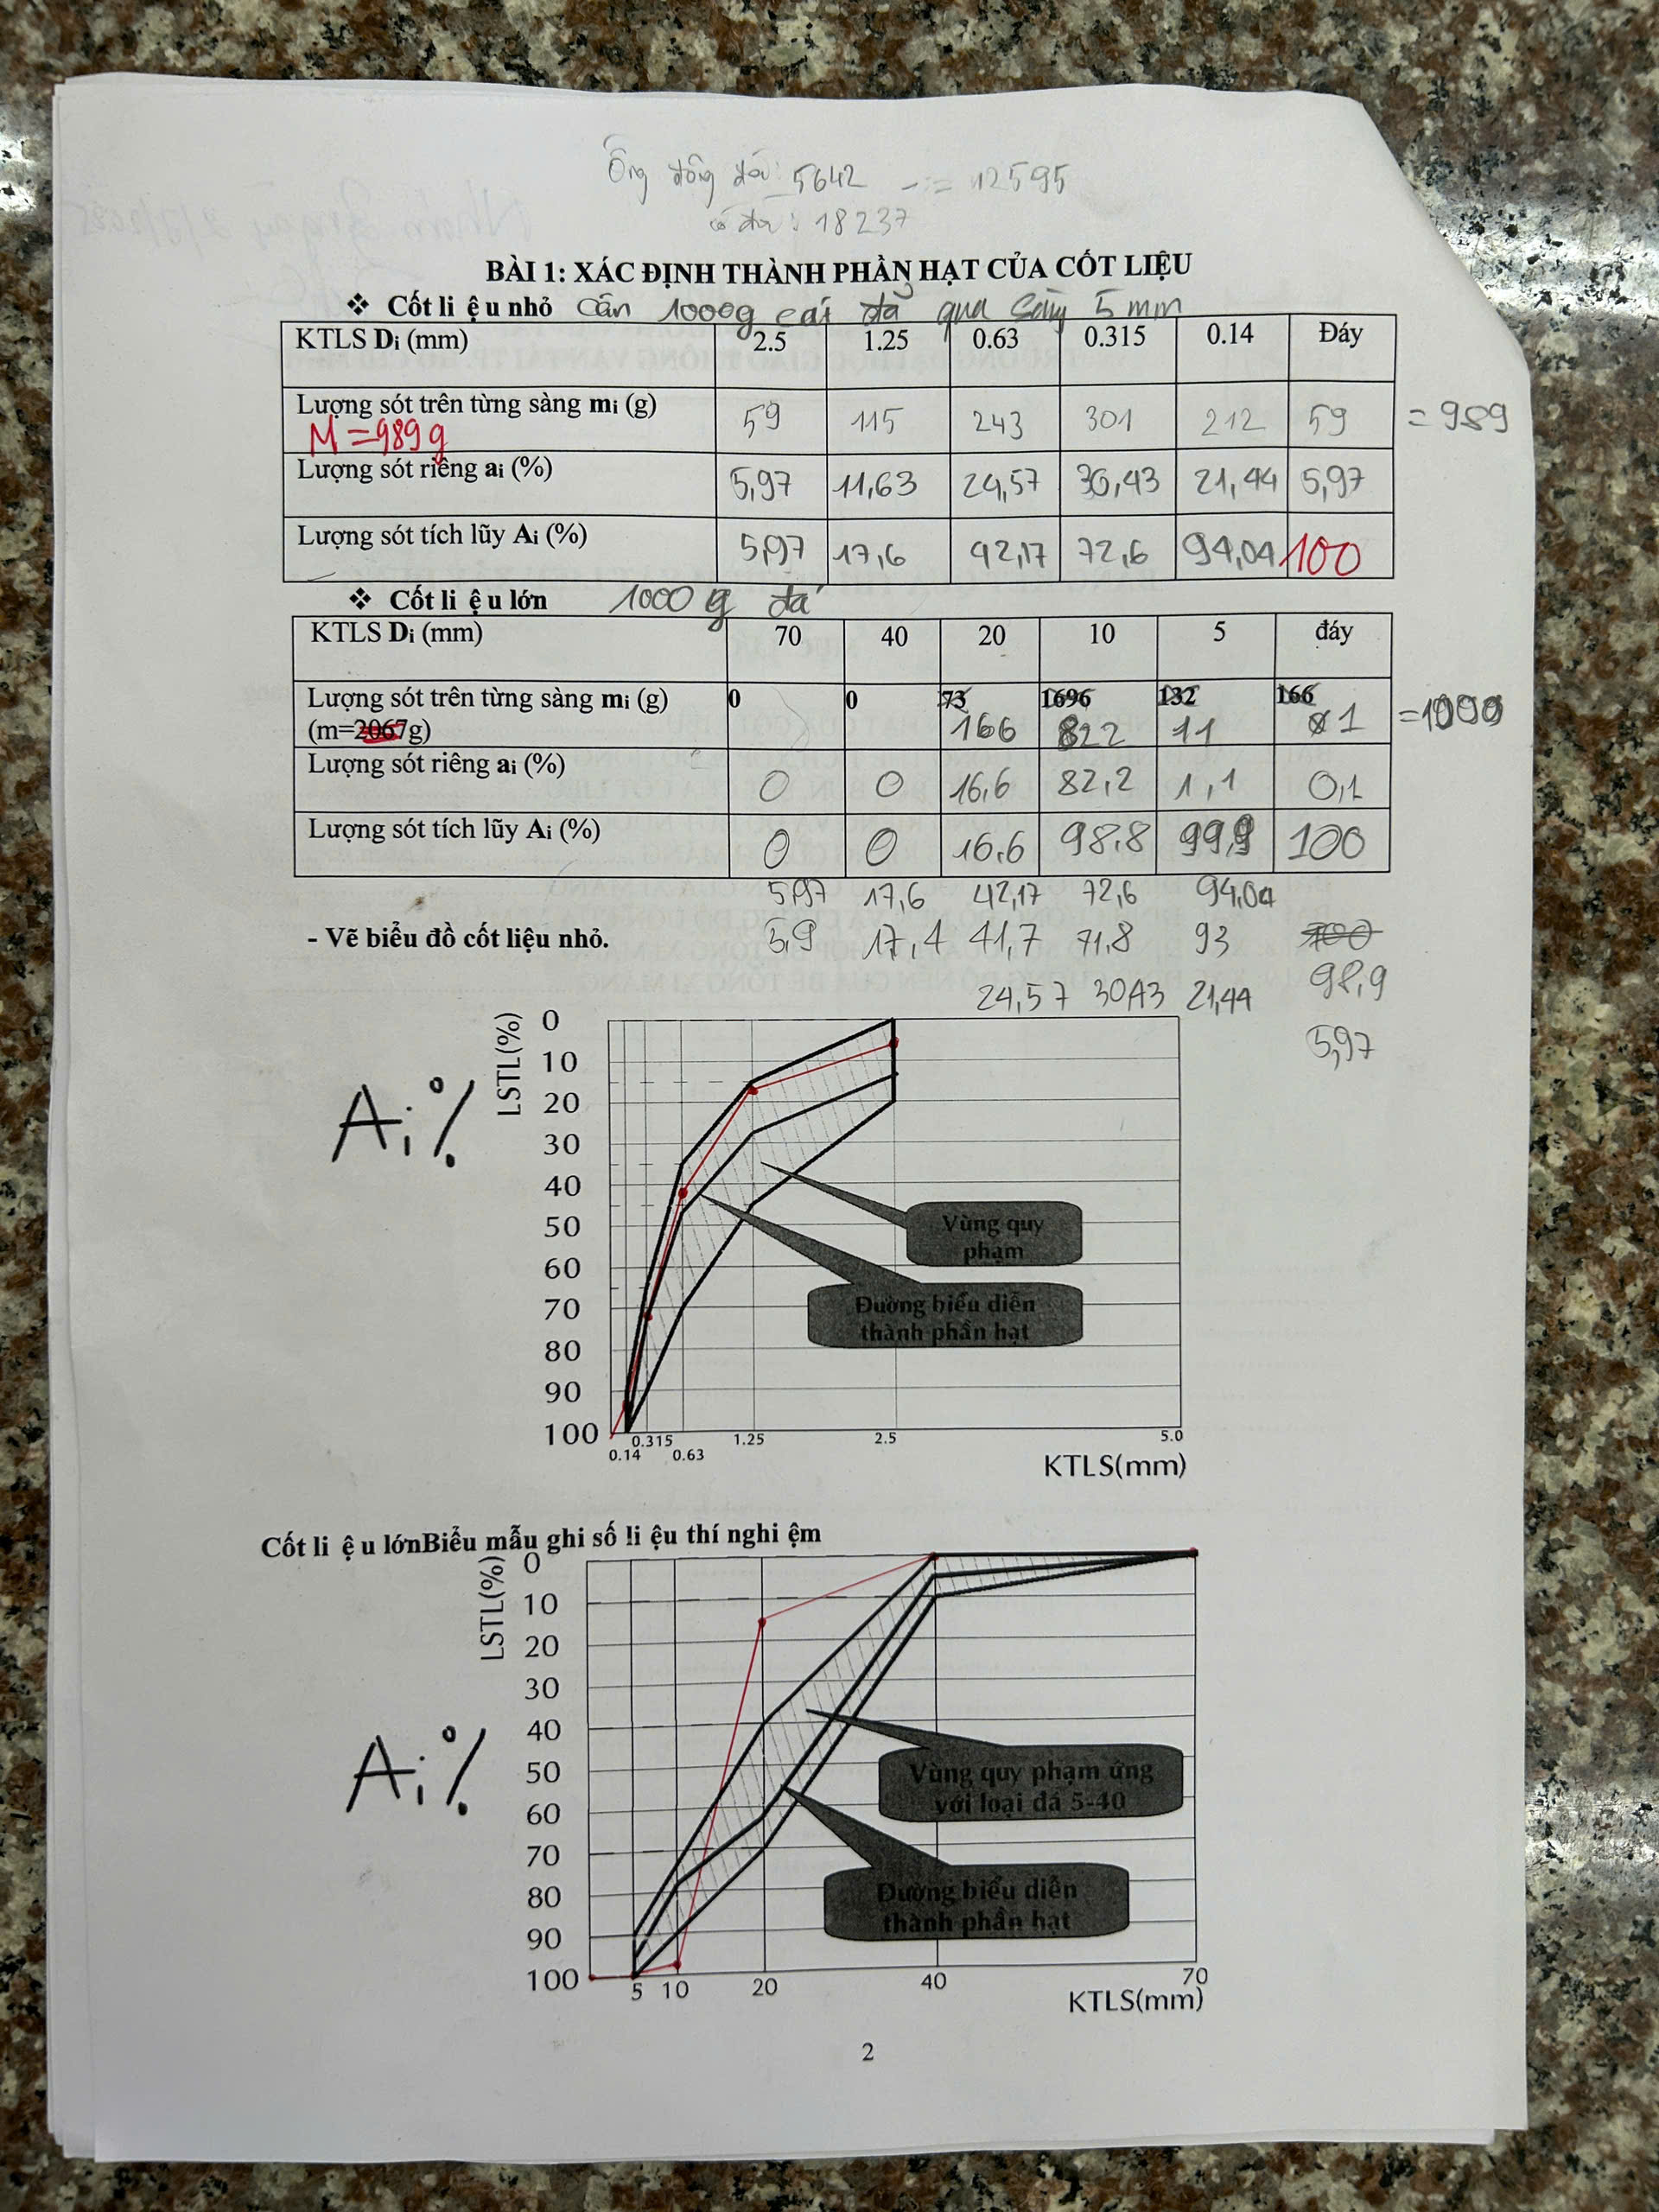 Ông đong đá: 5642 -> = 12595
có đá: 18237
BÀI 1: XÁC ĐỊNH THÀNH PHẦN HẠT CỦA CỐT LIỆU
❖ Cốt li ệ u nhỏ cân 1000g cát đã qua sàng 5 mm
KTLS Di (mm) 2.5 1.25 0.63 0.315 0.14 Đáy
Lượng sót trên từng sàng mi (g) 59 115 243 301 212 59 = 989
M = 989 g
Lượng sót riêng ai (%) 5,97 11,63 24,57 30,43 21,44 5,97
Lượng sót tích lũy Ai (%) 5,97 17,6 42,17 72,6 94,04 100
❖ Cốt li ệ u lớn 1000 g đá
KTLS Di (mm) 70 40 20 10 5 đáy
Lượng sót trên từng sàng mi (g) 0 0 73 1696 132 166
(m=2067g) 166 822 11 1 =1000
Lượng sót riêng ai (%) 0 0 16,6 82,2 1,1 0,1
Lượng sót tích lũy Ai (%) 0 0 16,6 98,8 99,9 100
5,97 17,6 42,17 72,6 94,04
- Vẽ biểu đồ cốt liệu nhỏ. 5,9 17,4 41,7 71,8 93 100
98,9
24,57 30,43 21,44
5,97
LSTL(%)
Ai%
0
10
20
30
40
50
60
70
80
90
100
Vùng quy
phạm
Đường biểu diễn
thành phần hạt
0.14 0.315 0.63 1.25 2.5 5.0
KTLS(mm)
Cốt li ệ u lớnBiểu mẫu ghi số li ệu thí nghi ệm
LSTL(%)
Ai%
0
10
20
30
40
50
60
70
80
90
100
Vùng quy phạm ứng
với loại đá 5-40
Đường biểu diễn
thành phần hạt
5 10 20 40 70
KTLS(mm)
2